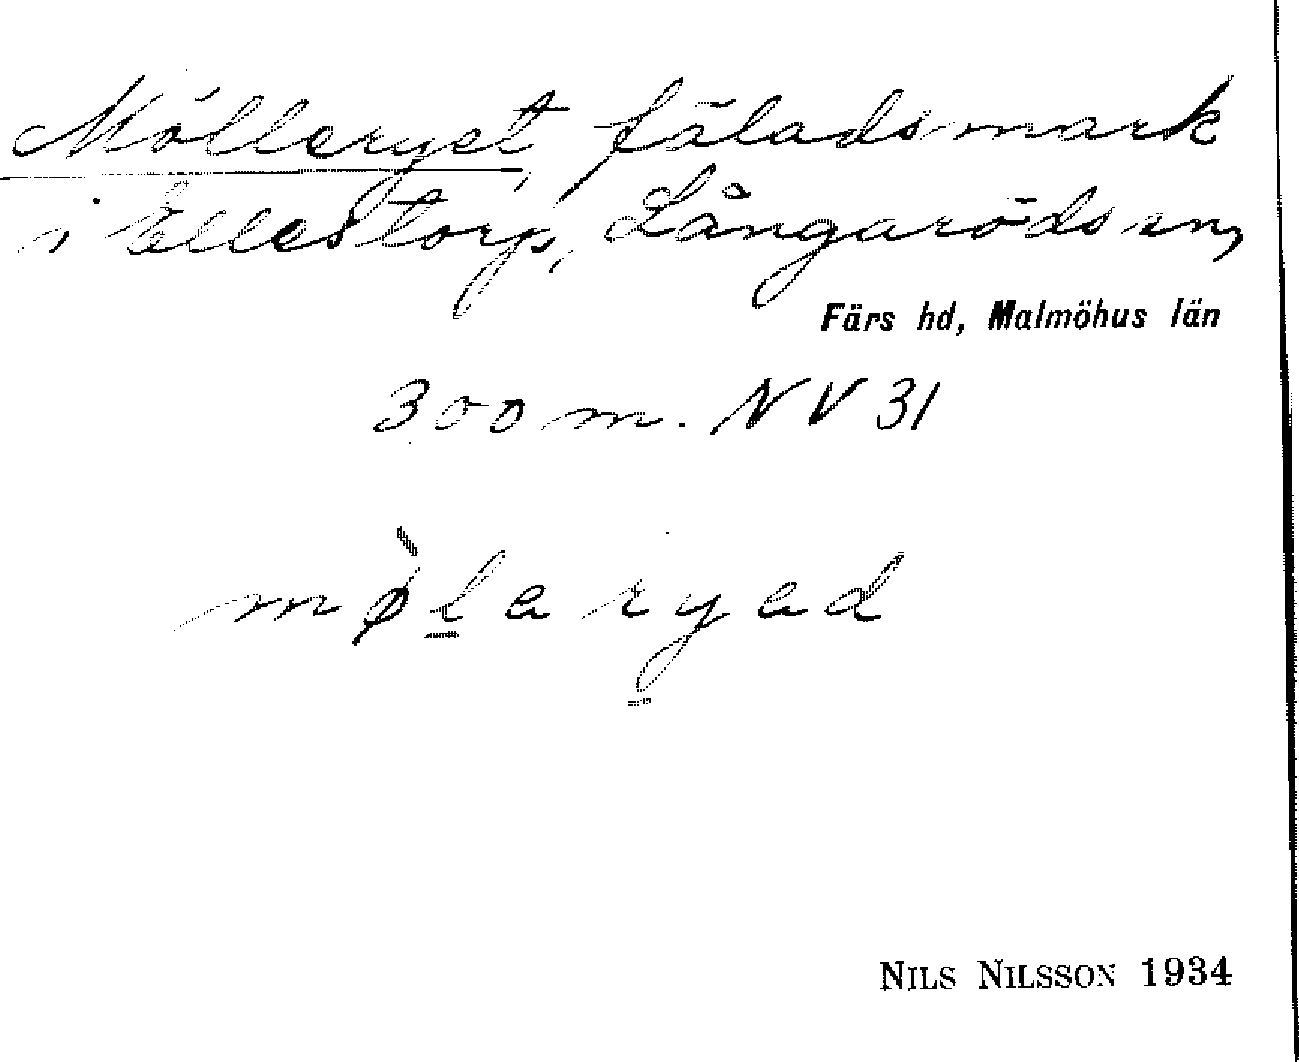 Mölleryet, fäladsmark
i Ellestorp, Långaröds sn,
Färs hd, Malmöhus län
300 m. NV 31
mø̀laryad
NILS NILSSON 1934